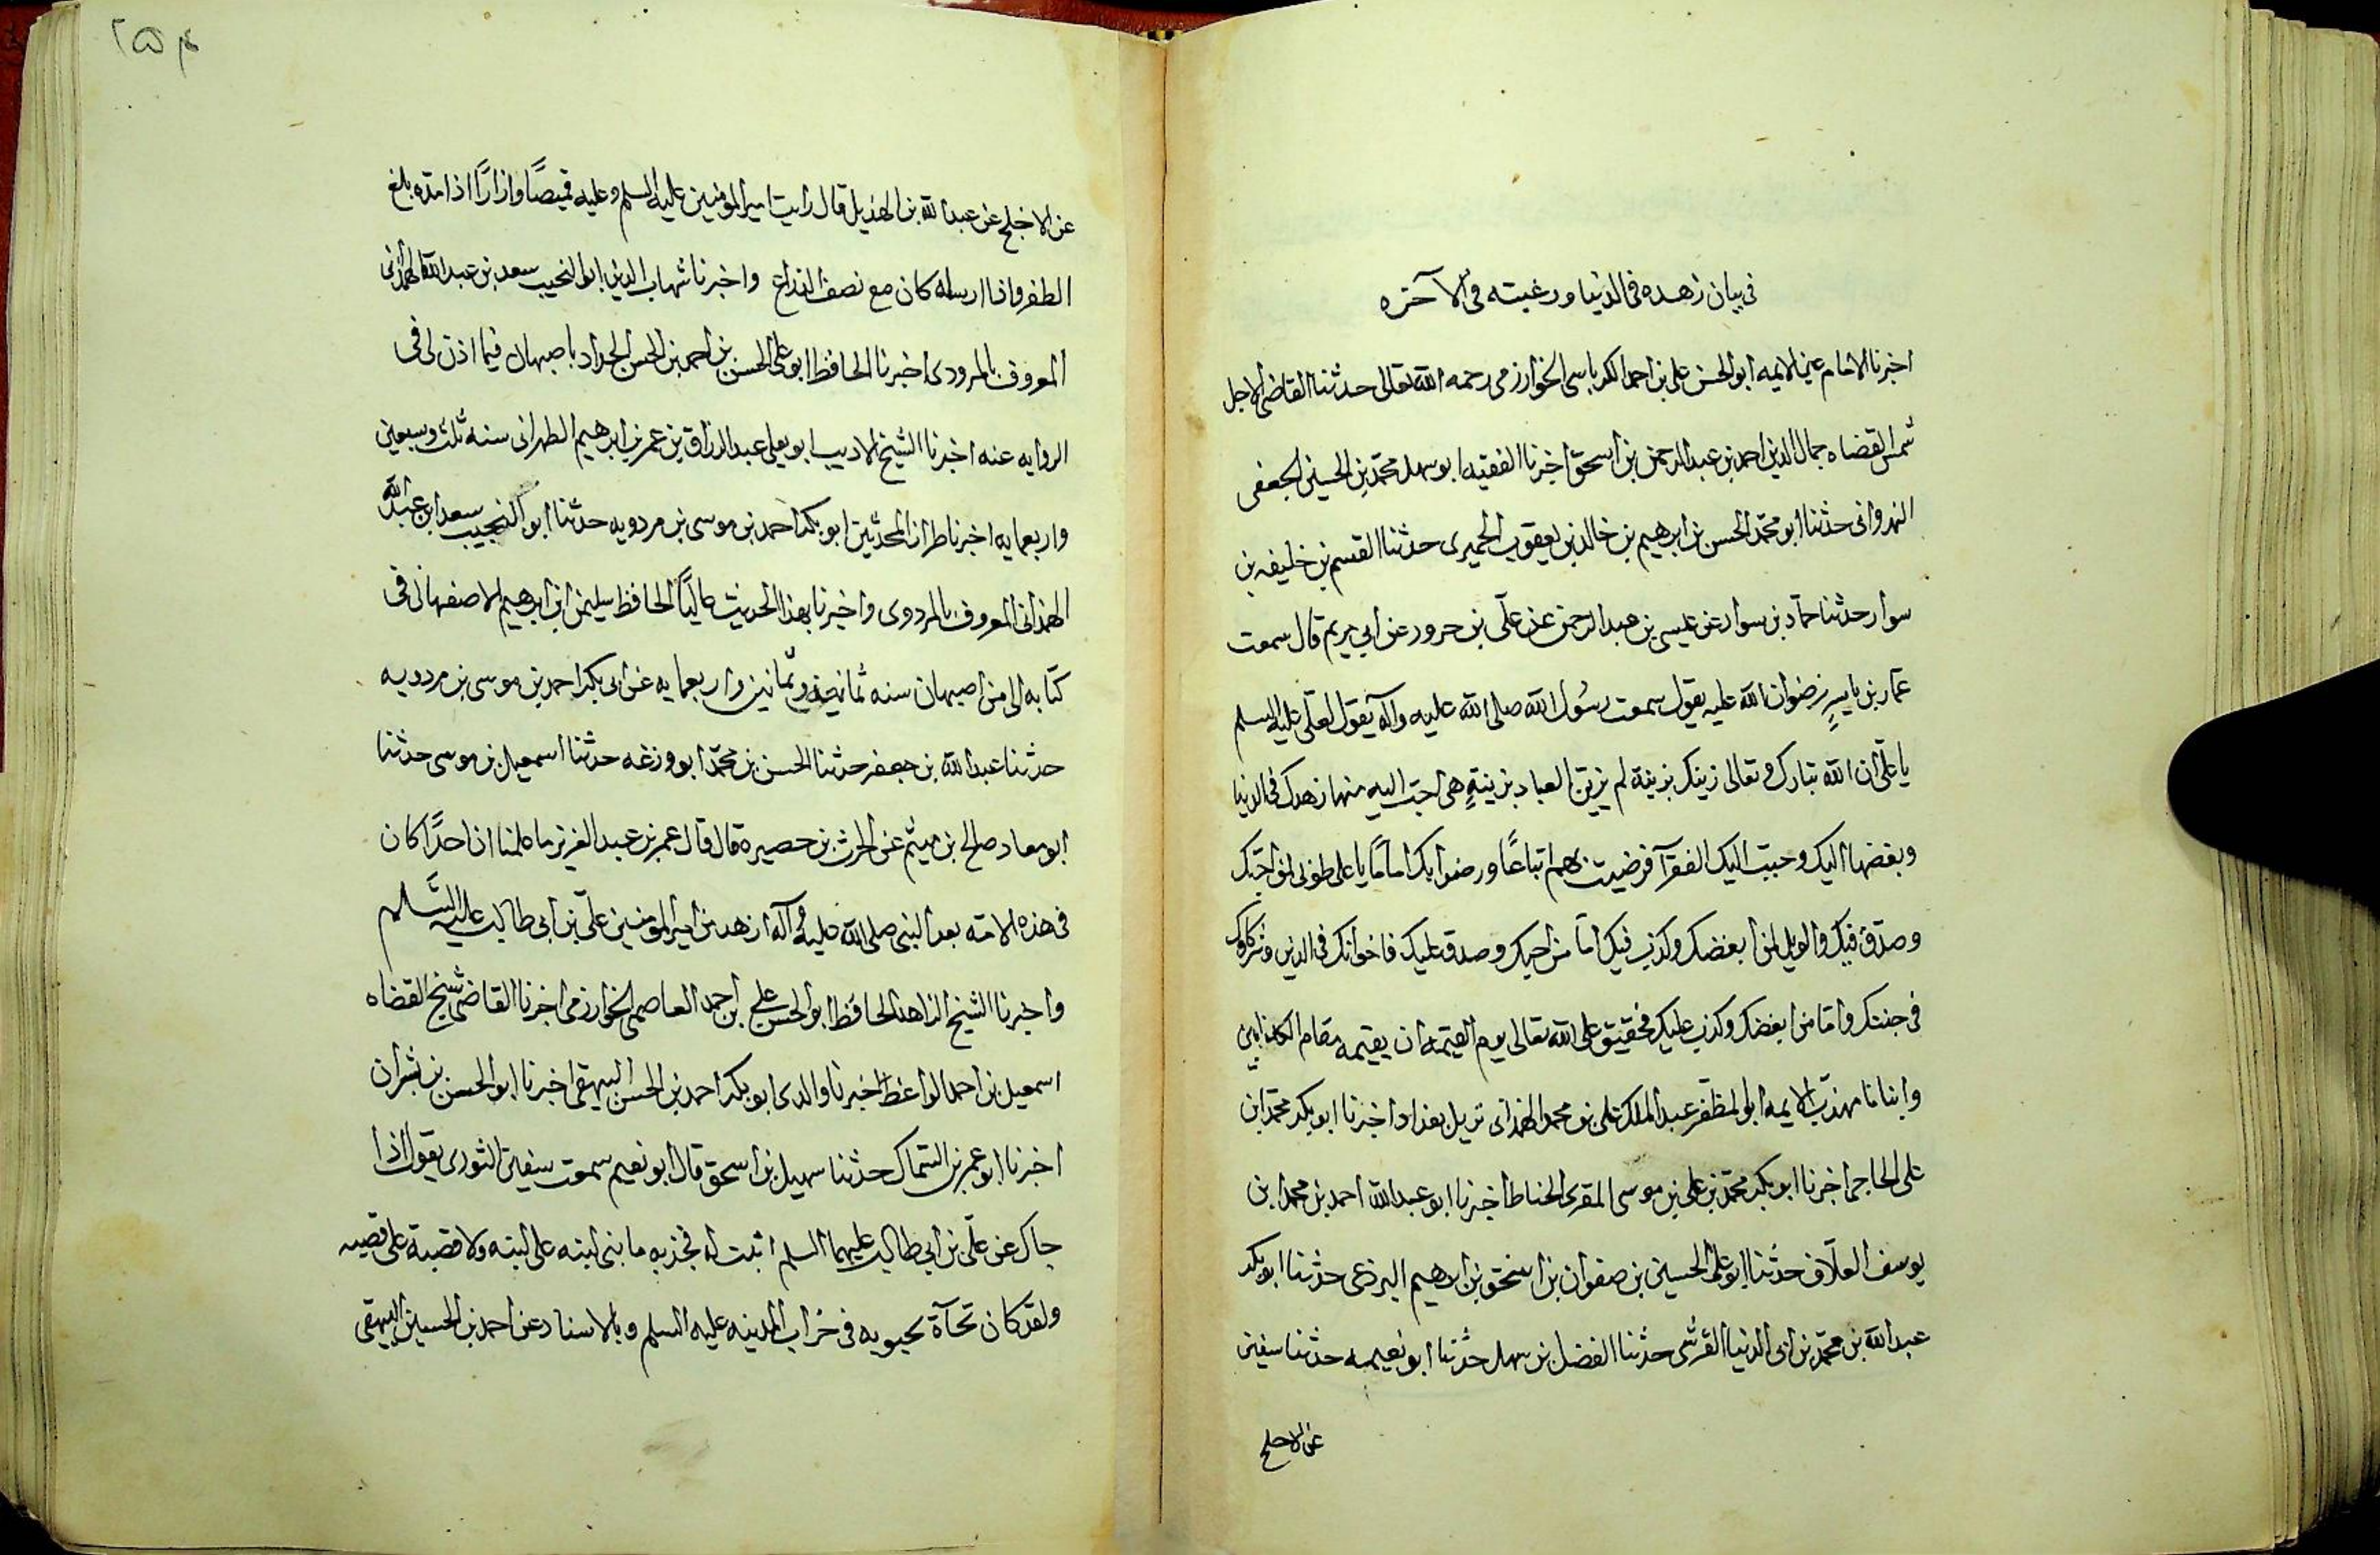 في بيان زهده في الدنيا ورغبته في الآخره
اخبرنا الامام عين الايمه ابو الحسن علي بن احمد الكرباسي الخوارزمي رحمه الله تعالى حدثنا القاضي الاجل
شمس القضاه جمال الدين احمد بن عبد الرحمن بن اسحق اخبرنا الفقيه ابو سهل محمد بن الحسين الجعفي
النهرواني حدثنا ابو محمد الحسن بن ابرهيم بن خالد بن يعقوب الحميري حدثنا القسم بن خليفه بن
سوار حدثنا حماد بن سوار عن عيسى بن عبد الرحمن عن علي بن حرور عن ابي مريم قال سمعت
عمار بن ياسر رضوان الله عليه يقول سمعت رسول الله صلى الله عليه وآله يقول لعلي عليه السلم
يا علي ان الله تبارك وتعالى زينك بزينة لم يزين العباد بزينةٍ هي احب اليه منها زهدك في الدنيا
وبغضها اليك وحبب اليك الفقرآ فرضيت بهم اتباعًا ورضوا بك امامًا يا علي طوبى لمن احبك
وصدق فيك والويل لمن ابغضك وكذب فيك اما من احبك وصدق عليك فاخوانك في الدين وشركاوك
في جنتك واما من ابغضك وكذب عليك فحقيق على الله تعالى يوم القيمه ان يقيمه مقام الكذابين
وانبانا مهذب الايمه ابو المظفر عبد الملك علي بن محمد الهمذاني نزيل بغداد اخبرنا ابو بكر محمد ابن
علي الحاجي اخبرنا ابو بكر محمد بن علي بن موسى المقري الخياط اخبرنا ابو عبد الله احمد بن محمد ابن
يوسف العلاف حدثنا ابو علي الحسين بن صفوان بن اسحق بن ابرهيم البرذعي حدثنا ابو بكر
عبد الله بن محمد بن ابي الدنيا القرشي حدثنا الفضل بن سهل حدثنا ابو نعيم حدثنا سفين
عن الاجلح
٢٥٤
عن الاجلح عن عبد الله بن الهذيل قال رايت امير المومنين عليه السلم وعليه قميصًا وازارًا اذا مده بلغ
الظفر واذا ارسله كان مع نصف الذراع واخبرنا شهاب الدين ابو النجيب سعد بن عبد الله الهمذاني
المعروف بالمرودي اخبرنا الحافظ ابو علي الحسن بن احمد بن الحسن الحداد باصبهان فيما اذن لي في
الروايه عنه اخبرنا الشيخ الاديب ابو يعلى عبد الرزاق بن عمر بن ابرهيم الطهراني سنه ثلث وسبعين
واربعمايه اخبرنا طراز المحدثين ابو بكر احمد بن موسى بن مردويه حدثنا ابو النجيب سعد ابن عبد الله
الهمذاني المعروف بالمردوي واخبرنا بهذا الحديث عاليًا الحافظ سليمن ابن ابرهيم الاصفهاني في
كتابه الي من اصبهان سنه ثمانين واربعمايه عن ابي بكر احمد بن موسى بن مردويه
حدثنا عبد الله بن جعفر حدثنا الحسن بن محمد ابو وزغه حدثنا اسمعيل بن موسى حدثنا
ابو معاد صالح بن ميثم عن الحرث بن حصيره قال قال عمر بن عبد العزيز ما علمنا ان احدًا كان
في هذه الامة بعد النبي صلى الله عليه وآله ازهد من امير المومنين علي بن ابي طالب عليه السلم
واخبرنا الشيخ الزاهد الحافظ ابو الحسن علي بن احمد العاصمي الخوارزمي اخبرنا القاضي شيخ القضاه
اسمعيل بن احمد الواعظ اخبرنا والدي ابو بكر احمد بن الحسن البيهقي اخبرنا ابو الحسن بن بشران
اخبرنا ابو عمر بن السماك حدثنا سهيل بن اسحق قال ابو نعيم سمعت سفين الثوري يقول اذا
جاك عن علي بن ابي طالب عليهما السلم اثبت له فخذ به ما بنى لبنه على لبنه ولا قصبة على قصبه
ولقد كان تجآة بحبوبه في خراب المدينه عليه السلم وبالاسناد عن احمد بن الحسين البيهقي